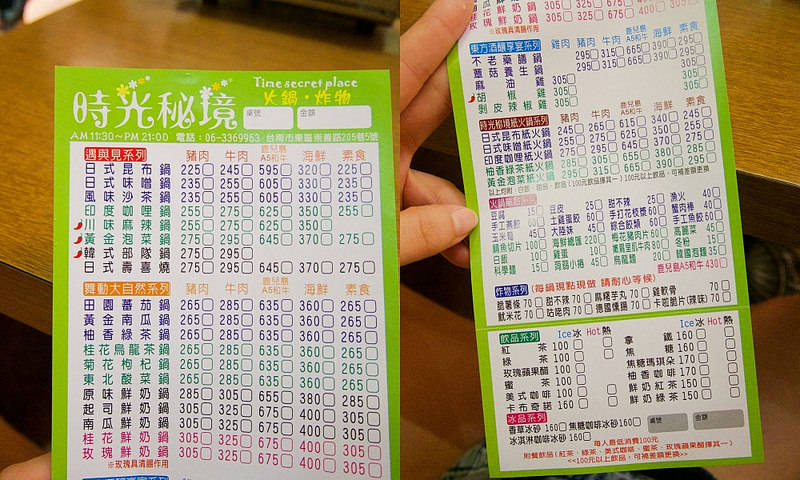 Time secret place
時光秘境
火鍋・炸物
桌號 金額
AM 11:30~PM 21:00 電話:06-3369963 台南市東區崇善路205巷5號
遇與見系列 豬肉 牛肉 鹿兒島A5和牛 海鮮 素食
日式昆布鍋 225 245 595 320 225
日式味噌鍋 235 255 605 330 235
風味沙茶鍋 235 255 605 330 235
印度咖哩鍋 255 275 625 350 255
川味麻辣鍋 255 275 625 350
黃金泡菜鍋 255 275 645 370 275
韓式部隊鍋 275 295
日式壽喜燒 275 295 645 370 275
舞動大自然系列 豬肉 牛肉 鹿兒島A5和牛 海鮮 素食
田園蕃茄鍋 265 285 635 360 265
黃金南瓜鍋 265 285 635 360 265
柚香綠茶鍋 265 285 635 360 265
桂花烏龍茶鍋 265 285 635 360 265
菊花枸杞鍋 265 285 635 360 265
東北酸菜鍋 265 285 635 360 265
原味鮮奶鍋 285 305 655 380 285
起司鮮奶鍋 305 325 675 400 305
南瓜鮮奶鍋 305 325 675 400 305
桂花鮮奶鍋 305 325 675 400 305
玫瑰鮮奶鍋 305 325 675 400 305
※玫瑰具清腸作用
玫瑰鮮奶鍋 305 325 675 400 305
※玫瑰具清腸作用
東方酒釀享宴系列 雞肉 豬肉 牛肉 鹿兒島A5和牛 海鮮 素食
不老藥膳鍋 295 315 665 390 295
蕈菇養生鍋 295 315 665 390 295
麻油雞 305 305
胡椒雞 305 305
剝皮辣椒雞 305
時光秘境紙火鍋系列 豬肉 牛肉 鹿兒島A5和牛 海鮮 素食
日式昆布紙火鍋 245 265 615 340 245
日式味噌紙火鍋 255 275 625 350 255
印度咖哩紙火鍋 275 295 645 370 275
柚香綠茶紙火鍋 285 305 655 380 285
黃金泡菜紙火鍋 295 315 665 390 295
火鍋單點系列
豆腐 15 豆皮 25 甜不辣 25 漁火 40
手工燕餃 60 土雞蛋餃 60 手打花枝漿 60 蟹肉棒 40
玉米筍 45 大陸妹 45 綜合餃類 60 手工魚餃 60
鯖魚切片 100 海鮮總匯 220 梅花豬肉片 60 高麗菜 45
白飯 10 雞蛋 10 嫩肩里肌牛肉 80 冬粉 15
科學麵 15 蒟蒻小捲 45 烏龍麵 20 韓國泡麵 35
鹿兒島A5和牛 430
炸物系列 (每鍋現點現做 請耐心等候)
脆薯條 70 甜不辣 70 麻糬芋丸 70 雞軟骨 70
魷米花 70 咕咾肉 70 德國燻腸 70 卡啦脆片(辣味) 70
飲品系列 Ice冰 Hot熱 Ice冰 Hot熱
紅茶 100 拿鐵 160
綠茶 100 焦糖 160
玫瑰蘋果醋 100 焦糖瑪琪朵 170
蜜茶 100 柚香咖啡 170
美式咖啡 100 鮮奶紅茶 150
卡布奇諾 160 鮮奶綠茶 150
冰品系列
香草冰砂 160 焦糖咖啡冰砂 160 桌號 金額
冰淇淋咖啡冰砂 160
每人最低消費100元
附餐飲品(紅茶、綠茶、美式咖啡、蜜茶、玫瑰蘋果醋擇其一)
<<100元以上飲品,可補差額更換>>